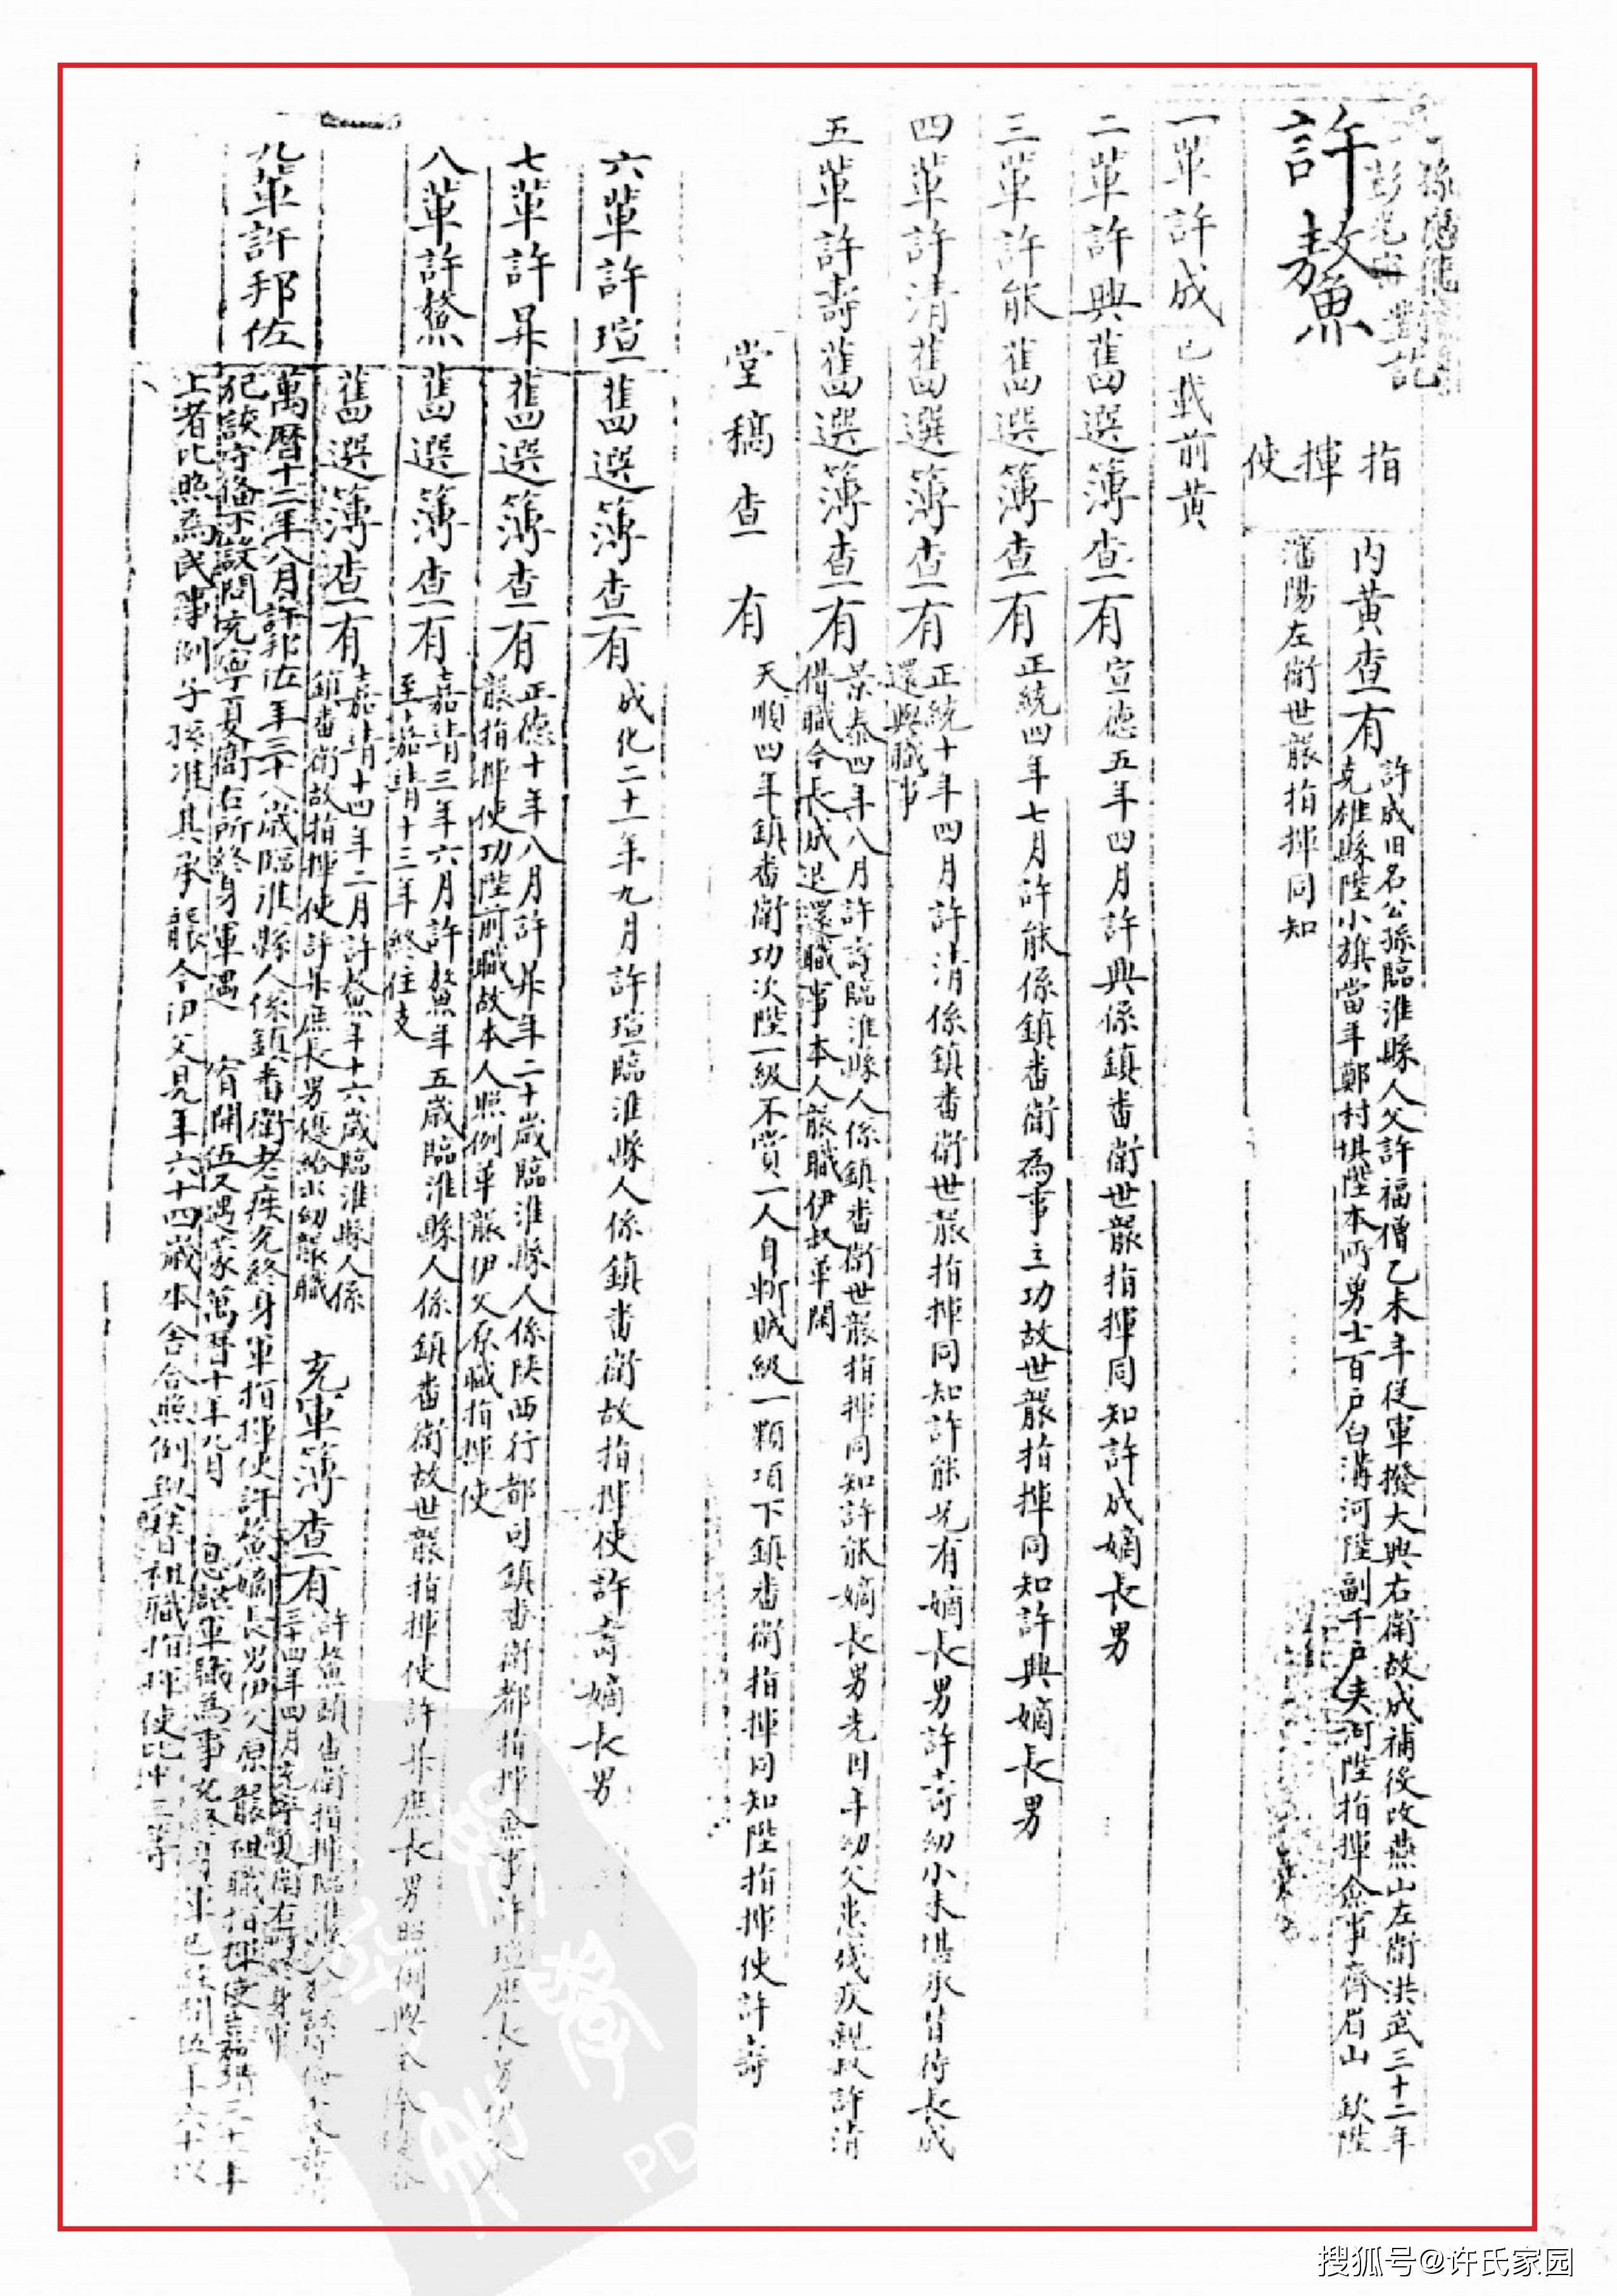 許鰲
指揮使
内黄查有
許成旧名公孫臨淮縣人父許福僧乙未年從軍撥大興右衛故成補役改燕山左衛洪武三十二年
克雄縣陞小旗當年鄭村垻陞本所男士百户白溝河陞副千户夹河陞指揮僉事齊眉山 欽陞
瀋陽左衛世襲指揮同知
一輩許成 已載前黄
二輩許興 舊選簿查有
宣德五年四月許興係鎮番衛世襲指揮同知許成嫡長男
三輩許能 舊選簿查有
正統四年七月許能係鎮番衛為事立功故世襲指揮同知許興嫡長男
四輩許清 舊選簿查有
正統十年四月許清係鎮番衛世襲指揮同知許能兄有嫡長男許壽幼小未堪承替待長成
還與職事
五輩許壽 舊選簿查有
景泰四年八月許壽臨淮縣人係鎮番衛世襲指揮同知許能嫡長男先因年幼父患残疾親叔許清
借職今長成退還職事本人襲職伊叔革閑
堂稿查有
天順四年鎮番衛功次陞一級不賞一人自斬賊級一顆項下鎮番衛指揮同知陞指揮使許壽
六輩許瑄 舊選簿查有
成化二十一年九月許瑄臨淮縣人係鎮番衛故指揮使許壽嫡長男
七輩許昇 舊選簿查有
正德十年八月許昇年二十歲臨淮縣人係陕西行都司鎮番衛都指揮僉事許瑄庶長男
襲指揮使功陞前職故本人照例革襲伊父原職指揮使
八輩許鰲 舊選簿查有
嘉靖三年六月許鰲年五歲臨淮縣人係鎮番衛故世襲指揮使許昇庶長男照例與全俸
至嘉靖十三年終住支
舊選簿查有
嘉靖十四年二月許鰲年十六歲臨淮縣人係
鎮番衛故指揮使許昇庶長男優給出幼襲職
充軍簿查有
九輩許邦佐
萬曆十二年八月許邦佐年三十八歲臨淮縣人係鎮番衛老疾充終身軍指揮使許鰲嫡長男伊父原襲祖職指揮使嘉靖三十年
犯該守俻不設問充寧夏衛右所終身軍遇 宥開伍又遇蒙萬曆十年九月 恩
上者比照為民事例子孫准其承襲今伊父見年六十四歲本舍合照例與替祖職指揮使比中三等
搜狐号@许氏家园